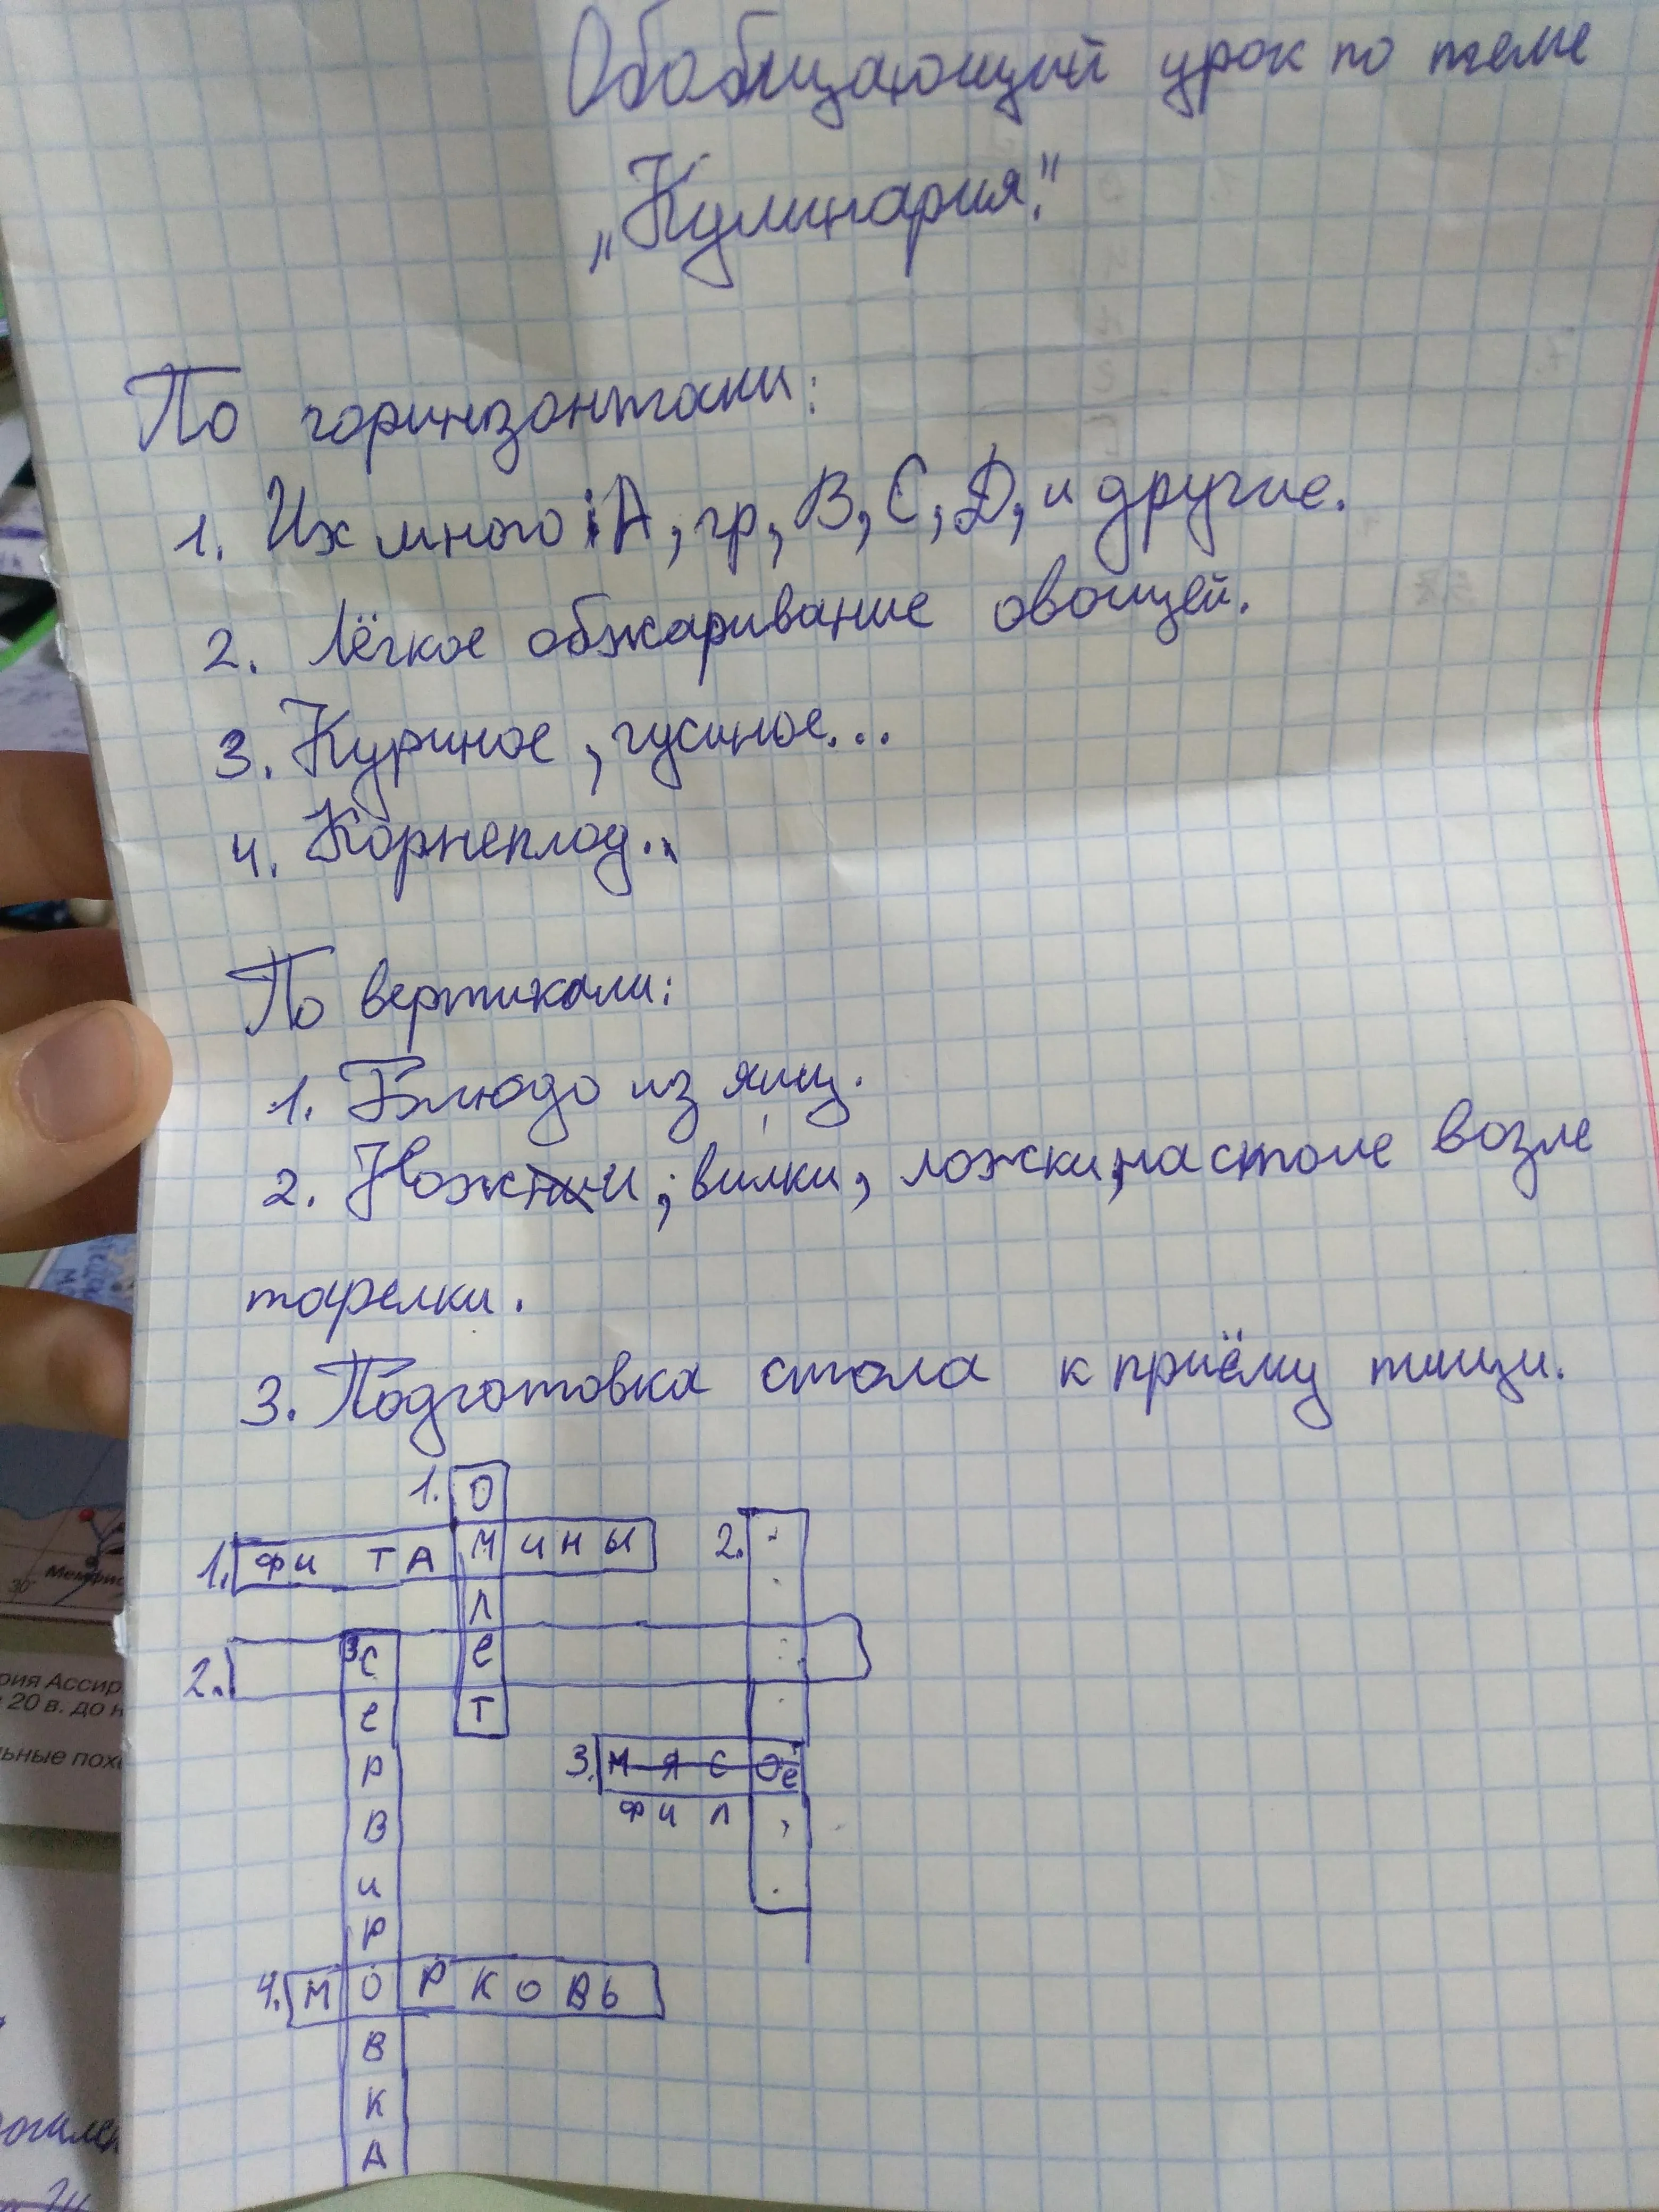 Обобщающий урок по теме
„Кулинария."
По горинзонтали:
1. Их много: А, гр, В, С, D, и другие.
2. Лёгкое обжаривание овощей.
3. Куриное, гусиное...
4. Корнеплод..
По вертикали:
1. Блюдо из яиц.
2. Ножи, вилки, ложки, на столе возле
тарелки.
3. Подготовка стола к приёму пищи.
1. О
1. ФИТАМИНЫ 2.
Л
2. 3 С Е
Е Т
Р 3. МЯСО Е
В ФИЛ
И
Р
4. МОРКОВЬ
В
К
А
30° Мемфис
рия Ассир
20 в. до н
ьные похо